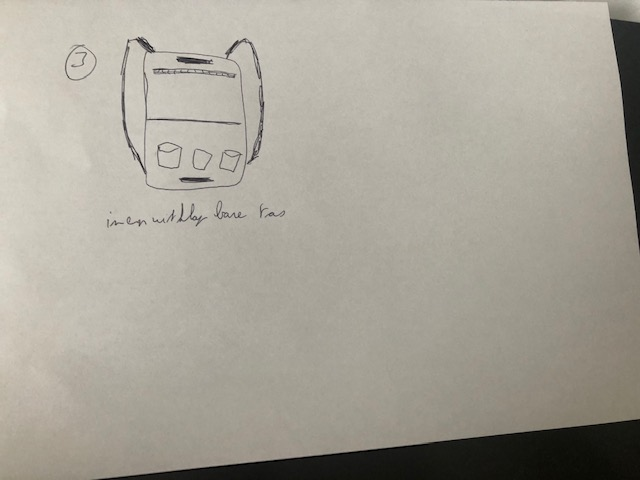 3
in en uitklapbare tas